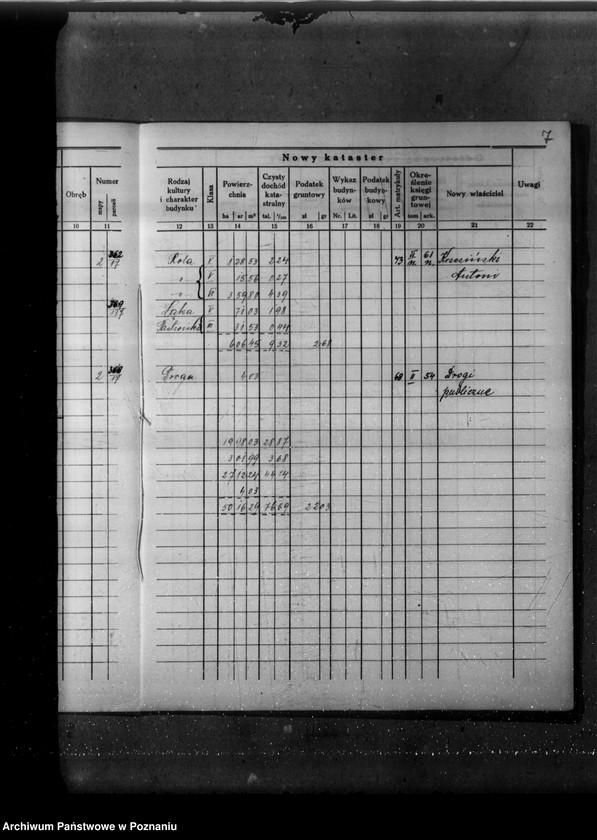 7
Nowy kataster
Obręb Numer mapy parceli Rodzaj kultury i charakter budynku Klasa Powierzchnia ha ar m² Czysty dochód katastralny tal. Podatek gruntowy zł gr Wykaz budynków Nr. Lit. Podatek budynkowy zł gr Art. matrykuły Określenie księgi gruntowej tom ark. Nowy właściciel Uwagi
10 11 12 13 14 15 16 17 18 19 20 21 22
2 362/17 Rola V 1 28 53 2 24 73 II 61
" V 15 56 0 27 Antoni
" VI 3 59 80 4 39
Łąka V 71 03 1 98
III 31 53 0 44
6 06 45 9 32 2 68
2 Droga 4 03 69 II 54 Drogi
publiczne
19 18 03 28 87
3 01 99 3 68
27 12 24 44 14
4 03
50 16 29 76 69 22 03
Archiwum Państwowe w Poznaniu